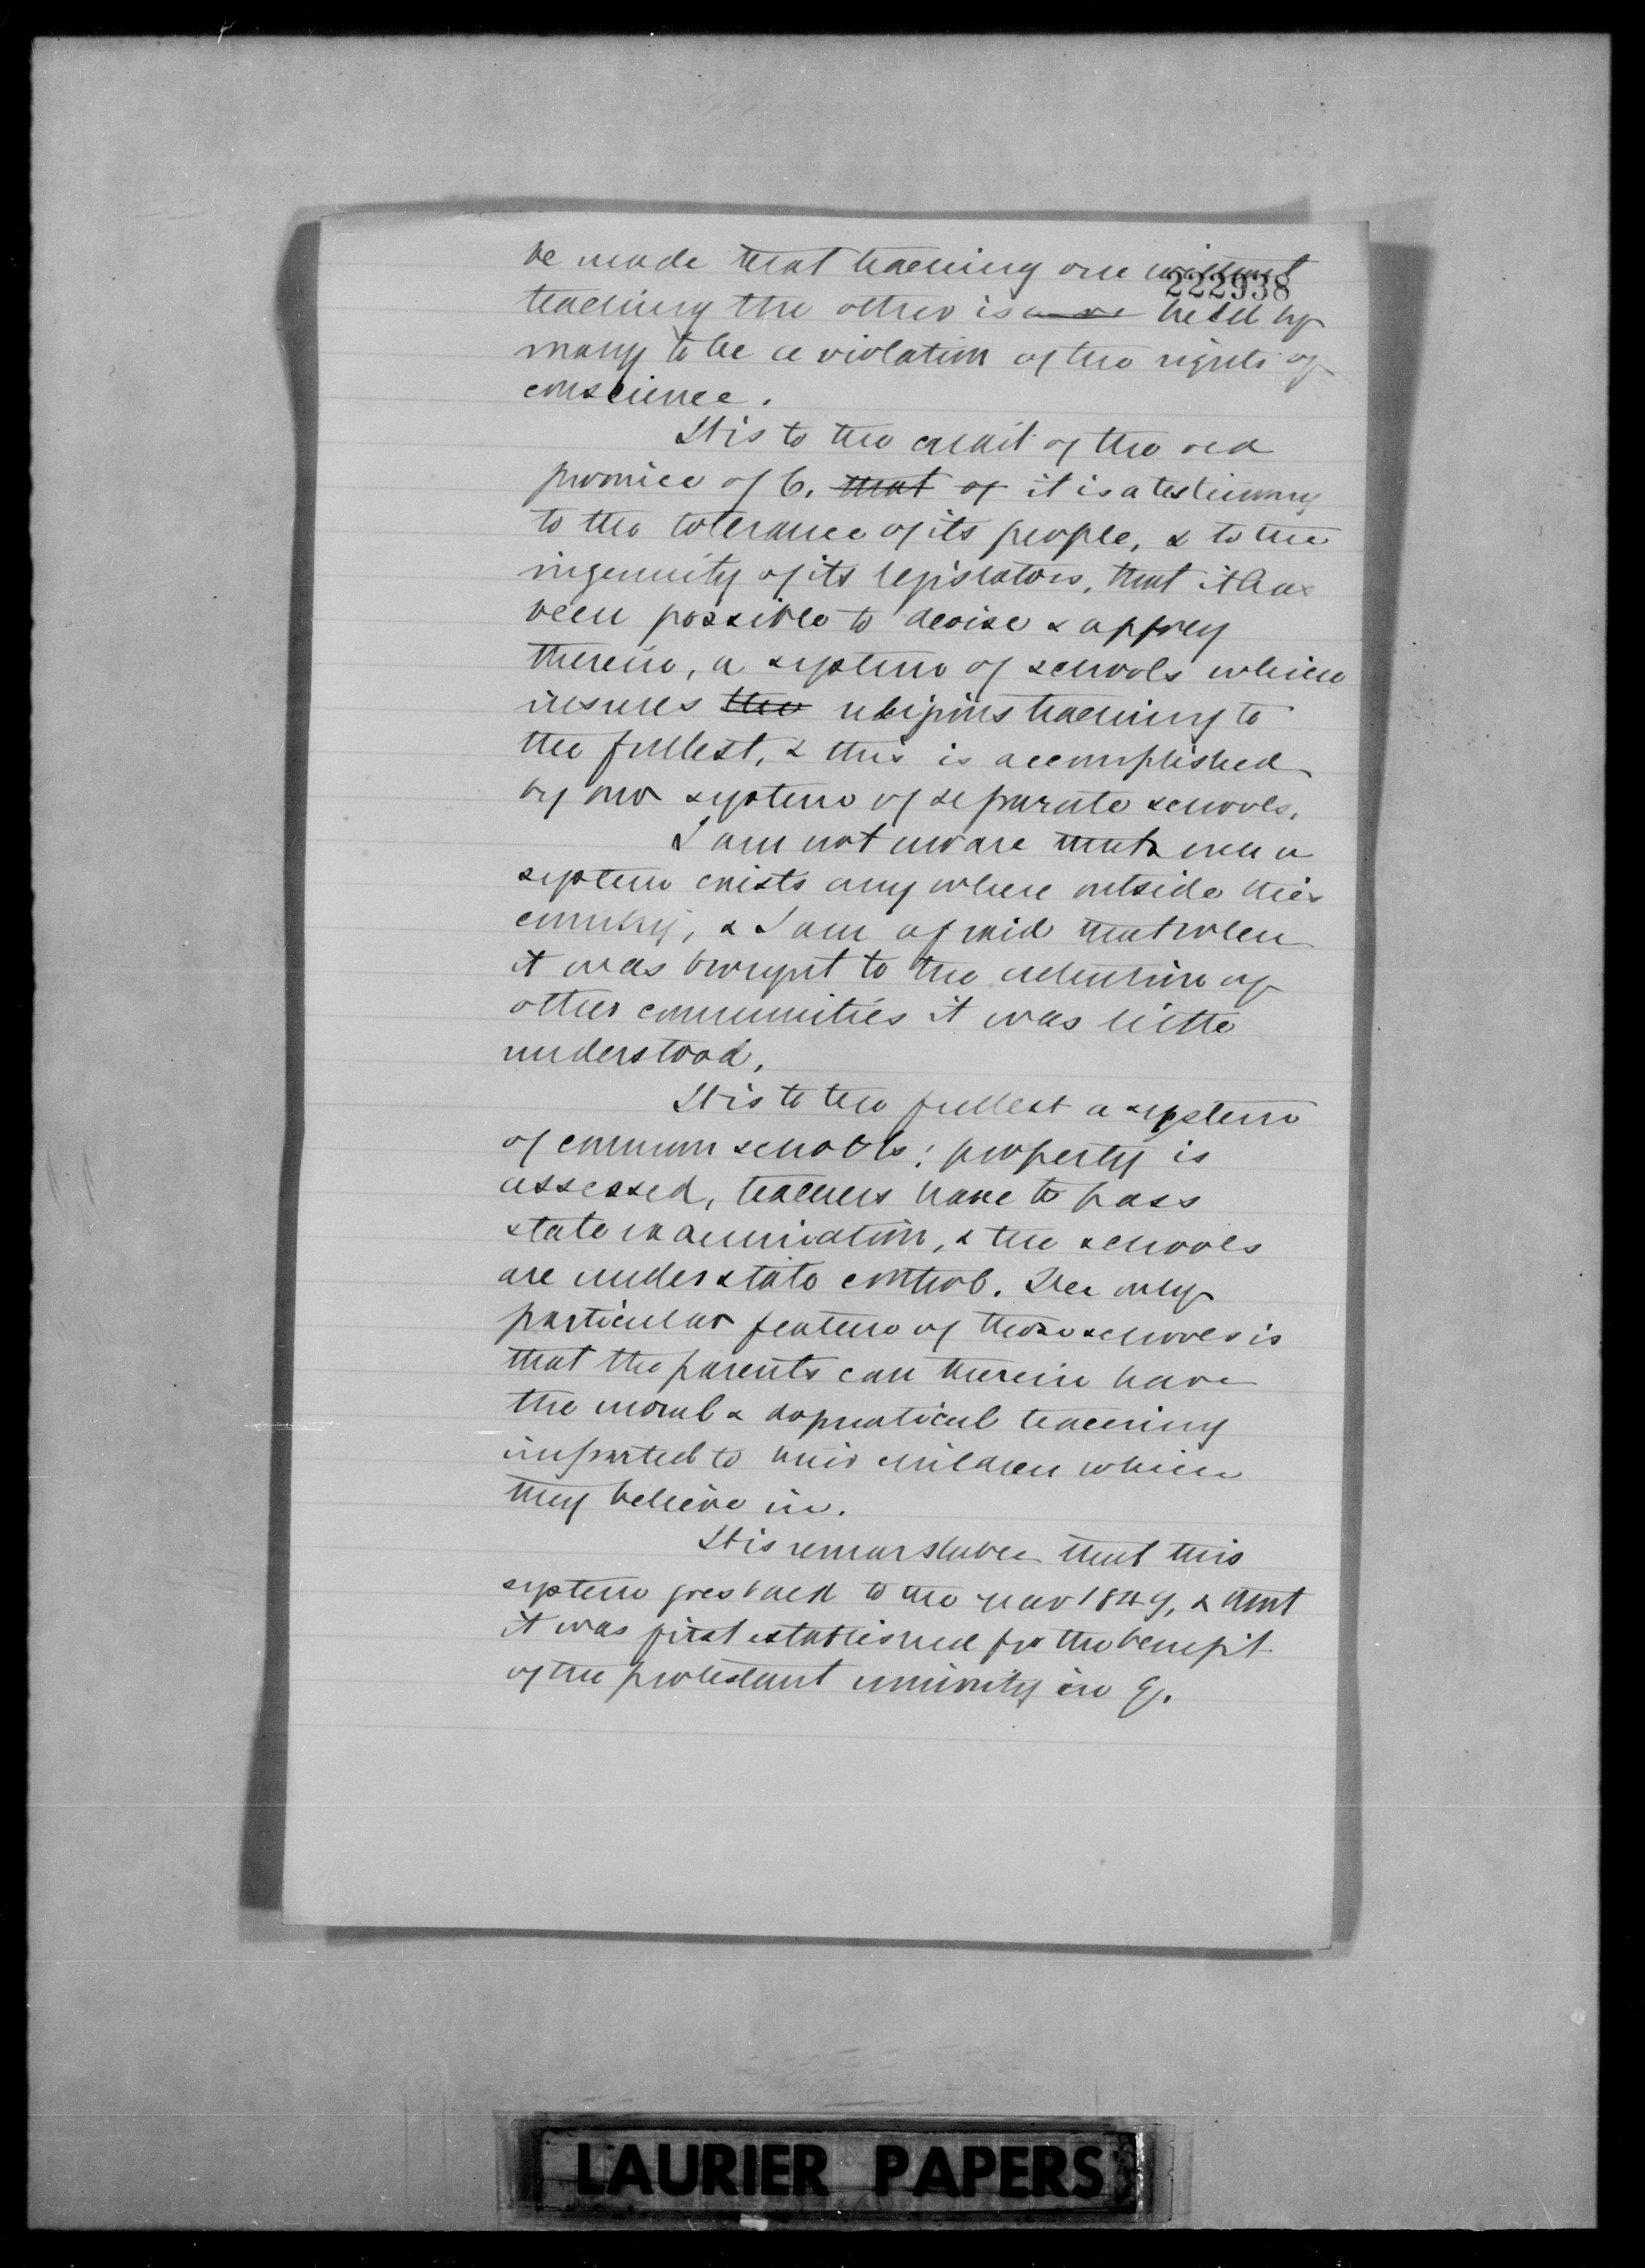 be made that teaching one without
222938
teaching the other is held by
many to be a violation of the rights of
conscience.
It is to the credit of the old
province of C. that of it is a testimony
to the tolerance of its people, & to the
ingenuity of its legislators, that it has
been possible to devise & apply
therein, a system of schools which
insures the religious teaching to
the fullest, & this is accomplished
by our system of separate schools.
I am not aware that such a
system exists any where outside this
country, & I am afraid that when
it was brought to the attention of
other communities it was little
understood.
It is to the fullest a system
of common schools: property is
assessed, teachers have to pass
state examination, & the schools
are under state control. The only
particular feature of those schools is
that the parents can therein have
the moral & dogmatical teaching
imparted to their children which
they believe in.
It is remarkable that this
system goes back to the year 1849, & that
it was first established for the benefit
of the protestant minority in Q.
LAURIER PAPERS